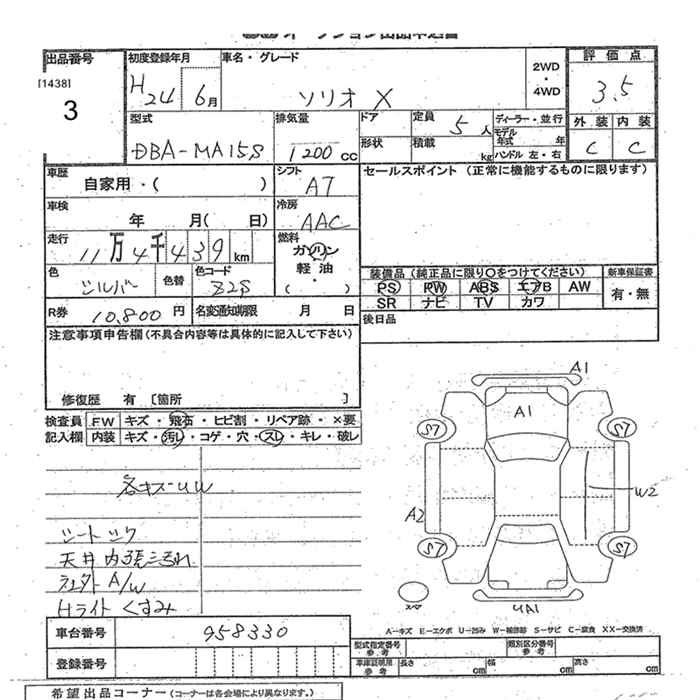 出品番号
[1438]
3
初度登録年月
H24 6月
車名・グレード
ソリオ X
2WD
・
4WD
評価点
3.5
外装 内装
C C
型式
DBA-MA15S
排気量
1200 cc
ドア
形状
定員 5人
積載 kg
ディーラー・並行
モデル
年式 年
ハンドル 左・右
車歴
自家用・( )
シフト
AT
セールスポイント (正常に機能するものに限ります)
車検
年 月( 日)
冷房
AAC
走行
11万4千439km
燃料
ガソリン
軽油
・
( )
色
シルバー
色替
色コード
Z2S
装備品 (純正品に限り○をつけてください)
PS PW ABS エアB AW
SR ナビ TV カワ
新車保証書
有・無
R券
10,800 円
名変通知期限 月 日
後日品
注意事項申告欄 (不具合内容等は具体的に記入して下さい)
修復歴 有 〔箇所 〕
検査員
記入欄
FW キズ・飛石・ヒビ割・リペア跡・×要
内装 キズ・汚レ・コゲ・穴・スレ・キレ・破レ
各キズ・UW
シート
天井内張
A/W
Hライト くすみ
A1
A1
S7
S7
W2
A2
S7
S7
スペア
UA1
A―キズ E―エクボ U―凹み W―補修跡 S―サビ C―腐食 XX―交換済
車台番号
958330
登録番号
型式指定番号
参考
類別区分番号
参考
車庫証明用
参考
長さ cm
幅 cm
高さ cm
希望出品コーナー (コーナーは各会場により異なります。)